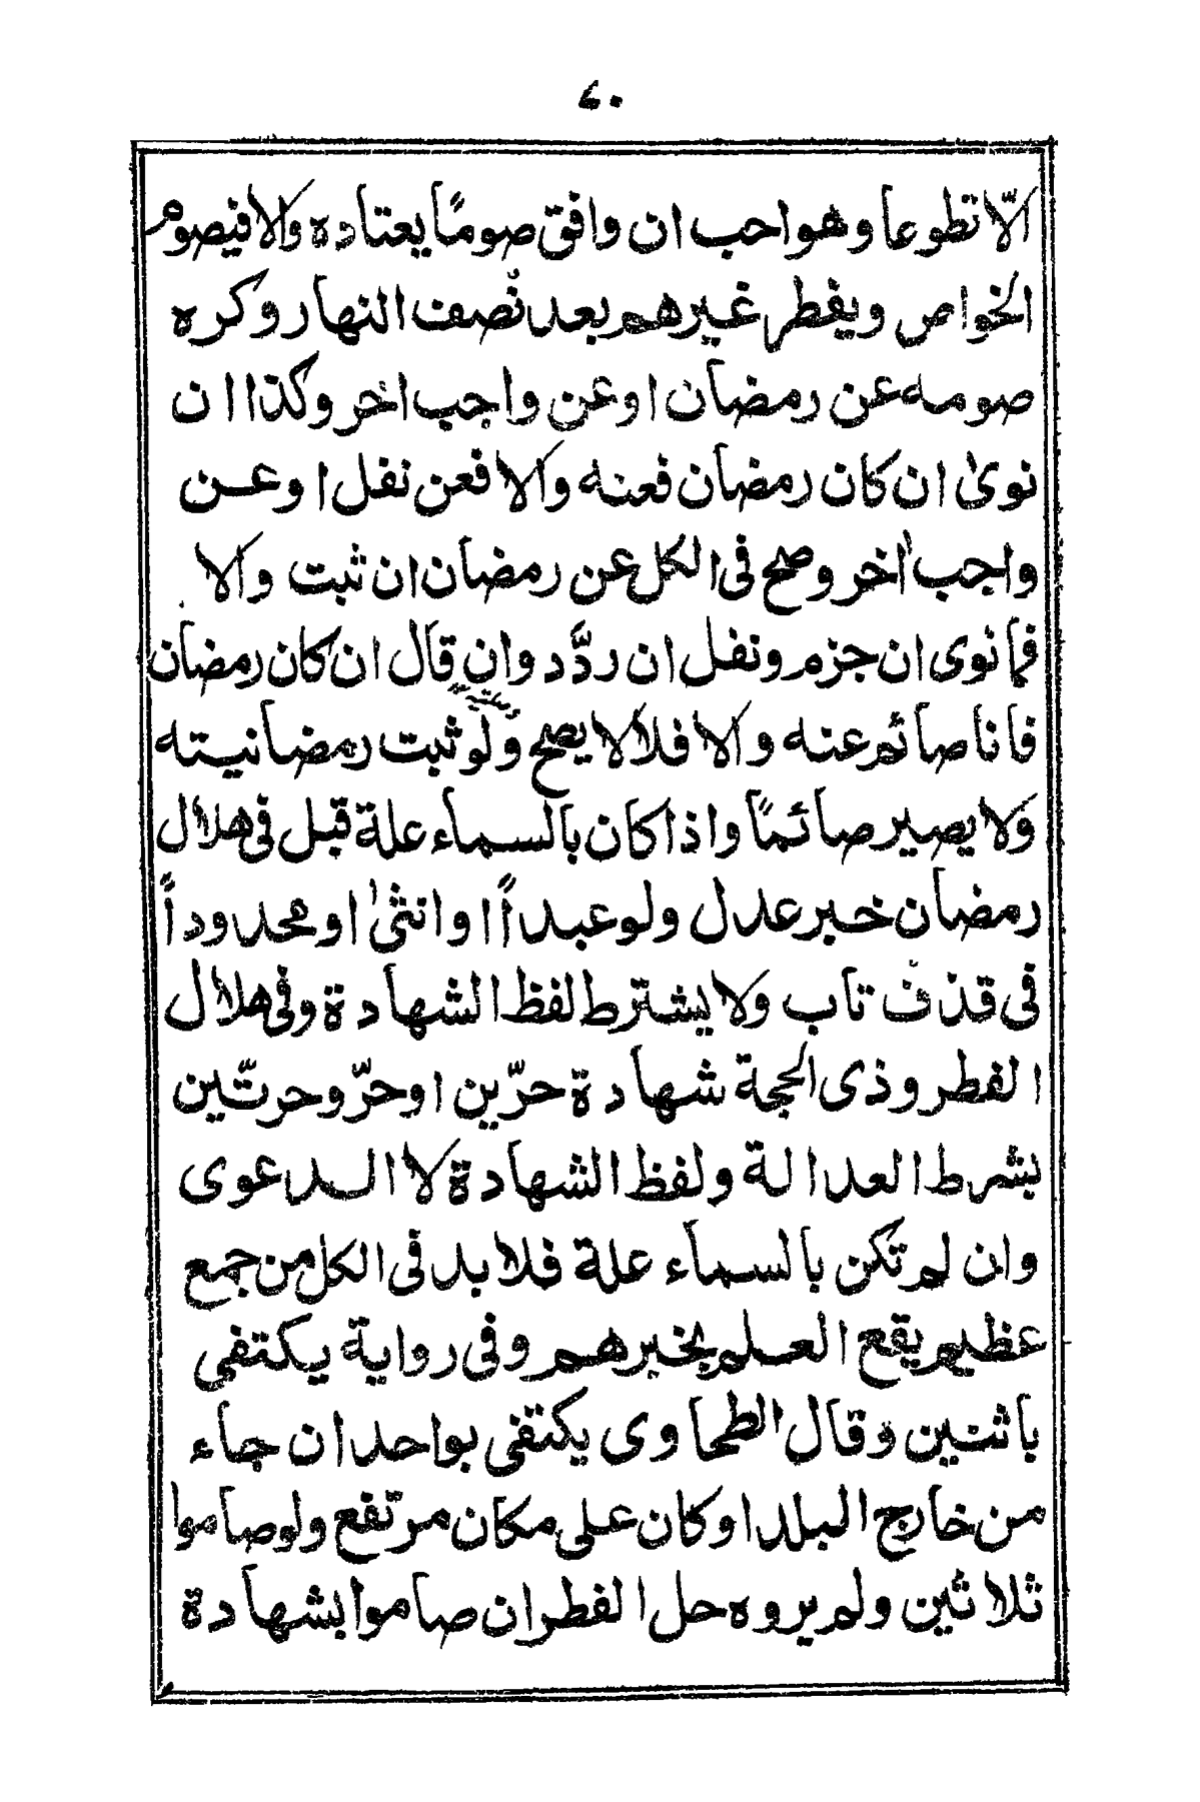 ٤٠
الّا تطوعا وهو احب ان وافق صومًا يعتاده والا فيصوم
الخواص ويفطر غيرهم بعد نصف النهار وكره
صومه عن رمضان او عن واجب اخر وكذا ان
نوىٰ ان كان رمضان فعنه والا فعن نفل او عن
واجب اٰخر وصح فى الكل عن رمضان ان ثبت والا
فما نوى ان جزم ونفل ان ردّد وان قال ان كان رمضان
فانا صائم عنه والا فلا لا يصح ولو ثبت رمضانيته
ولا يصير صائمًا واذا كان بالسماء علة قبل فى هلال
رمضان خبر عدل ولو عبداً او انثىٰ او محدوداً
فى قذف تاب ولا يشترط لفظ الشهادة وفى هلال
الفطر وذى الحجة شهادة حرّين او حرّ وحرتّين
بشرط العدالة ولفظ الشهادة لا الدعوى
وان لم تكن بالسماء علة فلا بد فى الكل من جمع
عظيم يقع العلم بخبرهم وفى رواية يكتفى
باثنين وقال الطحاوى يكتفى بواحد ان جاء
من خارج البلد او كان على مكان مرتفع ولو صاموا
ثلاثين ولم يروه حل الفطر ان صاموا بشهادة